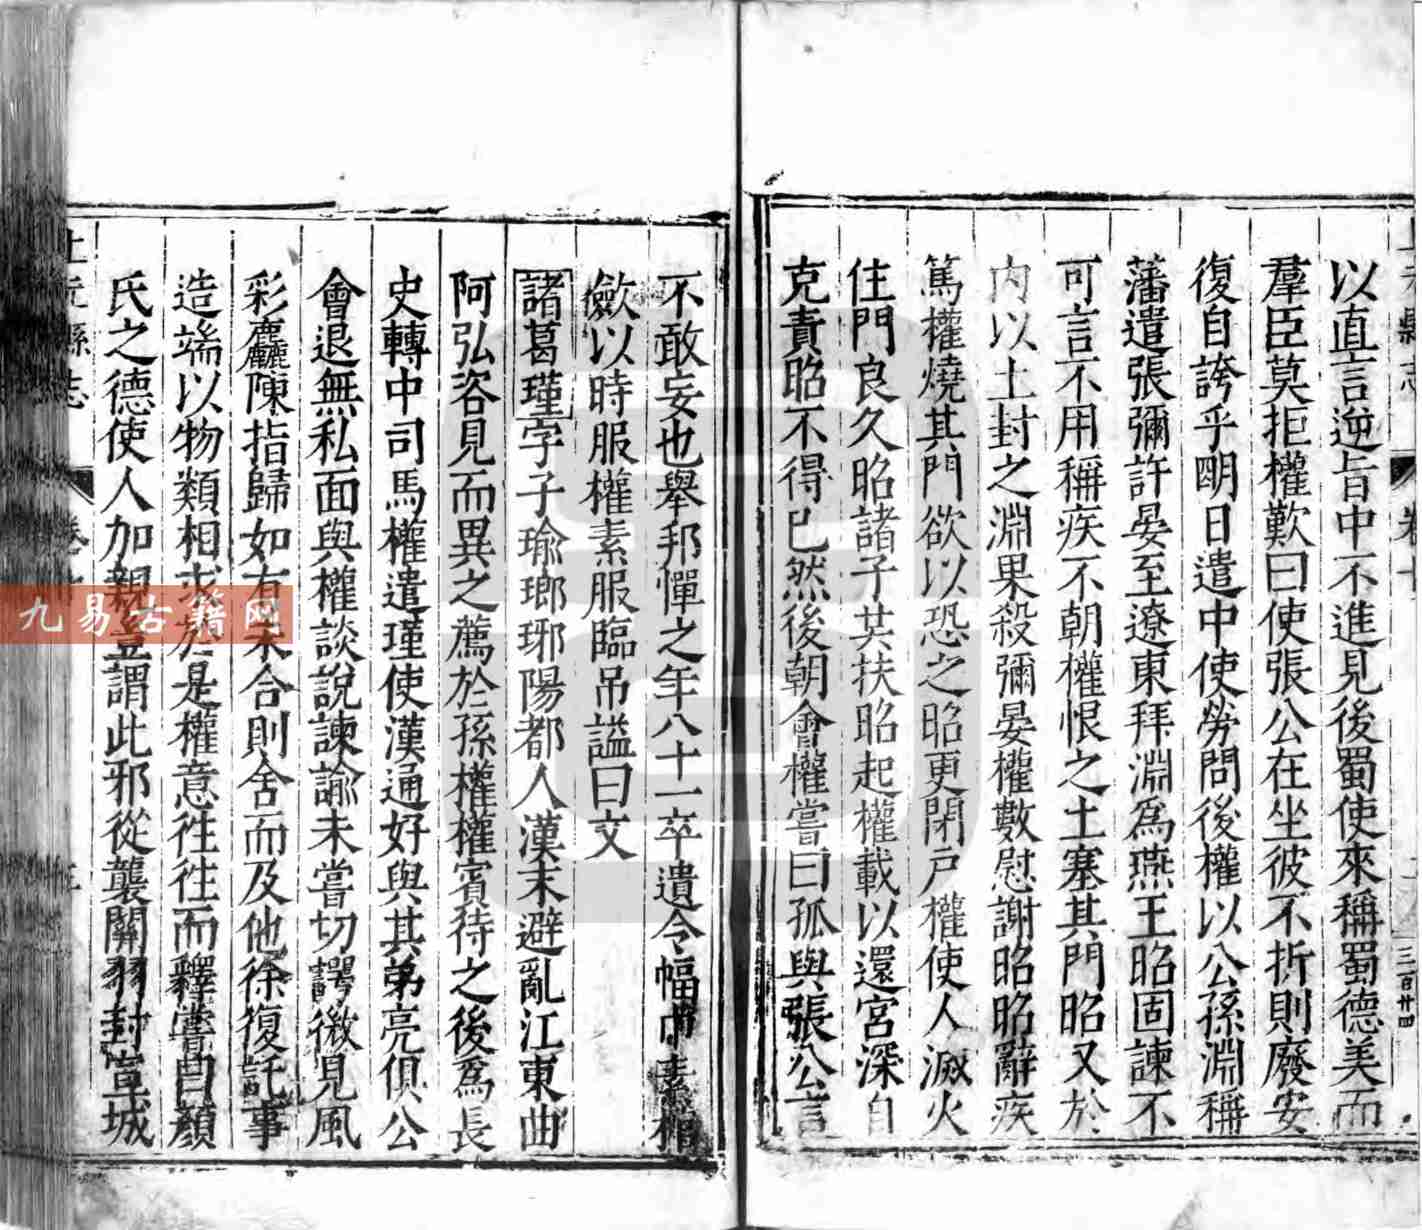 以直言逆旨中不進見後蜀使來稱蜀德美而
羣臣莫拒權歎曰使張公在坐彼不折則廢安
復自誇乎明日遣中使勞問後權以公孫淵稱
藩遣張彌許晏至遼東拜淵為燕王昭固諫不
可言不用稱疾不朝權恨之土塞其門昭又於
內以土封之淵果殺彌晏權數慰謝昭昭辭疾
篤權燒其門欲以恐之昭更閉戸權使人滅火
住門良久昭諸子共扶昭起權載以還宮深自
克責昭不得已然後朝會權嘗曰孤與張公言
不敢妄也舉邦憚之年八十一卒遺令幅巾素棺
斂以時服權素服臨吊謚曰文
諸葛瑾字子瑜瑯琊陽都人漢末避亂江東曲
阿弘咨見而異之薦於孫權權賓待之後為長
史轉中司馬權遣瑾使漢通好與其弟亮俱公
會退無私面與權談說諫諭未嘗切諤微見風
彩麤陳指歸如有未合則舍而及他徐復託事
造端以物類相求於是權意往往而釋嘗曰顏
氏之德使人加親豈謂此邪從襲關羽封宣城
上元縣志
卷
上元縣志
卷十
三百廿四
九易古籍网